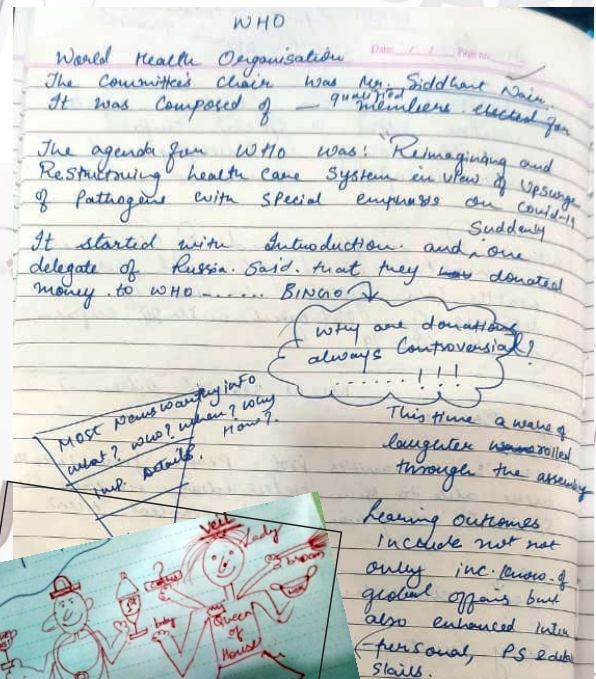 WHO
World Health Organisation
Date / / Page no.
The Committee's Chair was Mr. Siddhant Nair.
It was Composed of — qualified members elected for
The agenda for WHO was: "Reimagining and
Restructuring health care System in view of Upsurge
of Pathogens with Special emphasis on Covid-19
It started with Introduction. and Suddenly one
delegate of Russia. Said. that they donated
money. to WHO ...... BINGO
Why are donations
always Controversial?
......!!!
Most Newswanting info
What? who? when? Why
How?
Imp. Details.
This time a wave of
laughter rolled
through the assembly
Learning outcomes
include not not
only inc. know. of
global affairs but
also enhanced inter
-personal, PS & debate
Skills.
Veil
Lady
broom
baby
Milk
my
Queen
of
House